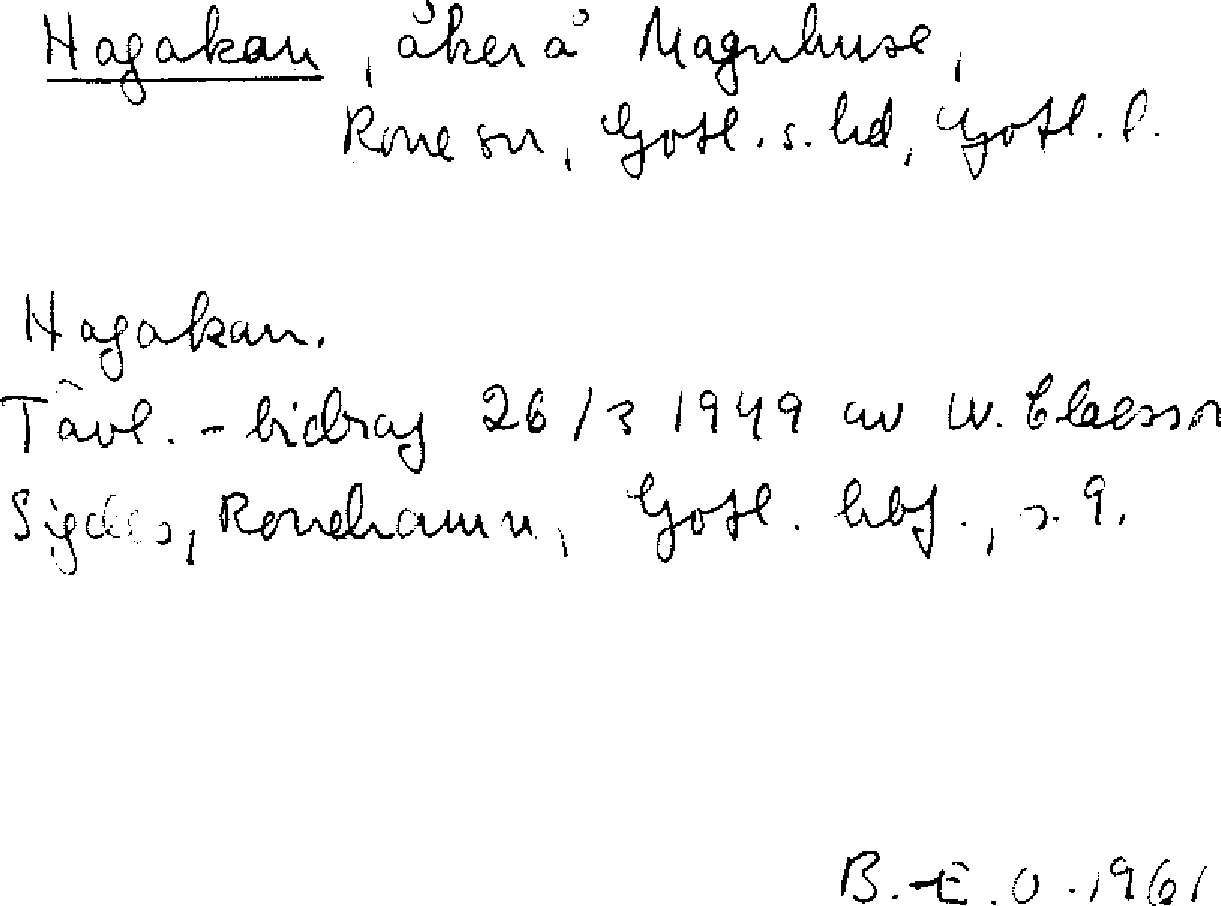 Hagakan, åker å Magnhuse,
Rone sn, Gotl. s. hd, Gotl. l.
Hagakan.
Tävl.-bidrag 26/3 1949 av W. Claesson
Sigdes, Ronehamn, Gotl. hbf., s. 9.
B.-E. O. 1961